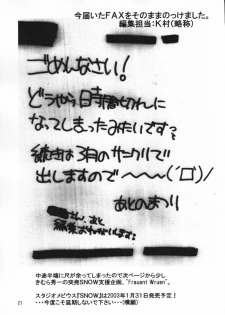 今届いたFAXをそのままのっけました。
編集担当:K村(略称)
ごめんなさい!
どうやら時間切れに
なってしまったみたいです?
続きは3月のサンクリで
出しますので〜〜〜(´ロ`)/
あとのまつり
中途半端に尺が余ってしまったので次ページから少し
きむら秀一の突発SNOW支援企画、"Frauent Wruen"。
スタジオメビウス『SNOW』は2003年1月31日発売予定!
・・・今度こそ延期しないで下さい…(横線)
21